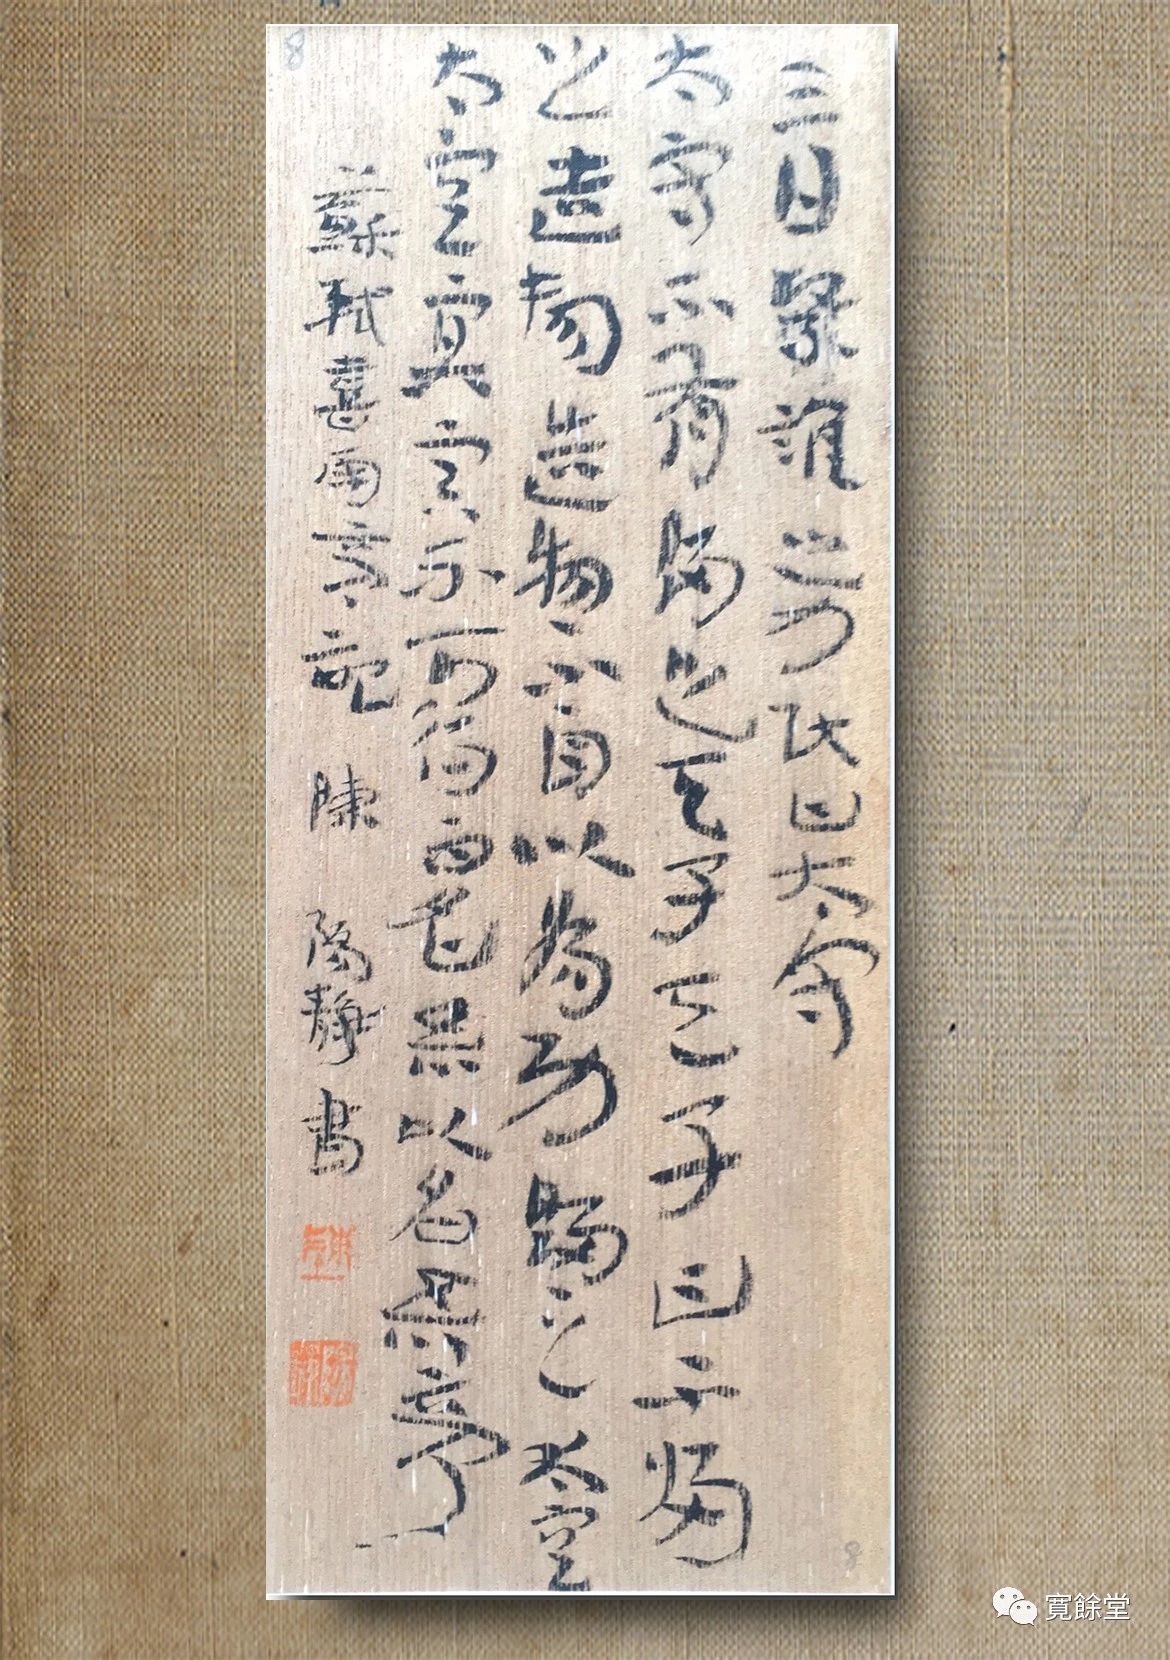 三日繄誰之力民曰太守
太守不有歸之天子天子曰不歸
之造物造物不自以為功歸之太空
太空冥冥不可得而名吾以名吾亭
蘇軾喜雨亭記 陳 陽靜書
8
8
寬餘堂